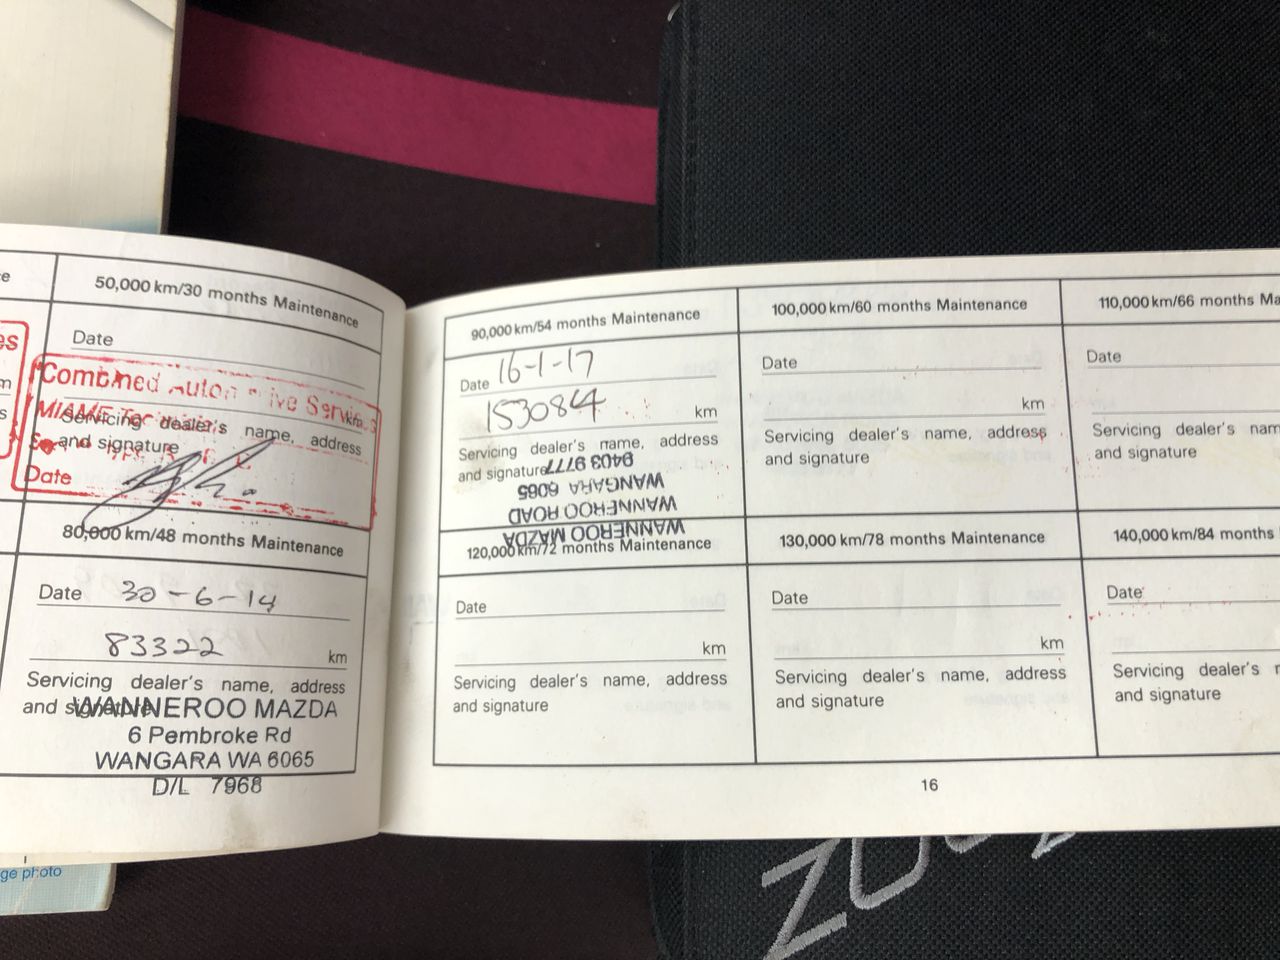 e
50,000 km/30 months Maintenance
Date
es
m
s
Combined Automotive Services
km
Servicing dealer's name, address
and signature
Date
80,000 km/48 months Maintenance
Date 30-6-14
83322 km
Servicing dealer's name, address
and signature
WANNEROO MAZDA
6 Pembroke Rd
WANGARA WA 6065
D/L 7968
ge photo
90,000 km/54 months Maintenance
Date 16-1-17
153084 km
Servicing dealer's name, address
and signature
WANNEROO MAZDA
WANNEROO ROAD
WANGARA 6065
9403 9777
100,000 km/60 months Maintenance
Date
km
Servicing dealer's name, address
and signature
110,000 km/66 months Ma
Date
Servicing dealer's nam
and signature
120,000 km/72 months Maintenance
Date
km
Servicing dealer's name, address
and signature
130,000 km/78 months Maintenance
Date
km
Servicing dealer's name, address
and signature
140,000 km/84 months
Date
Servicing dealer's n
and signature
16